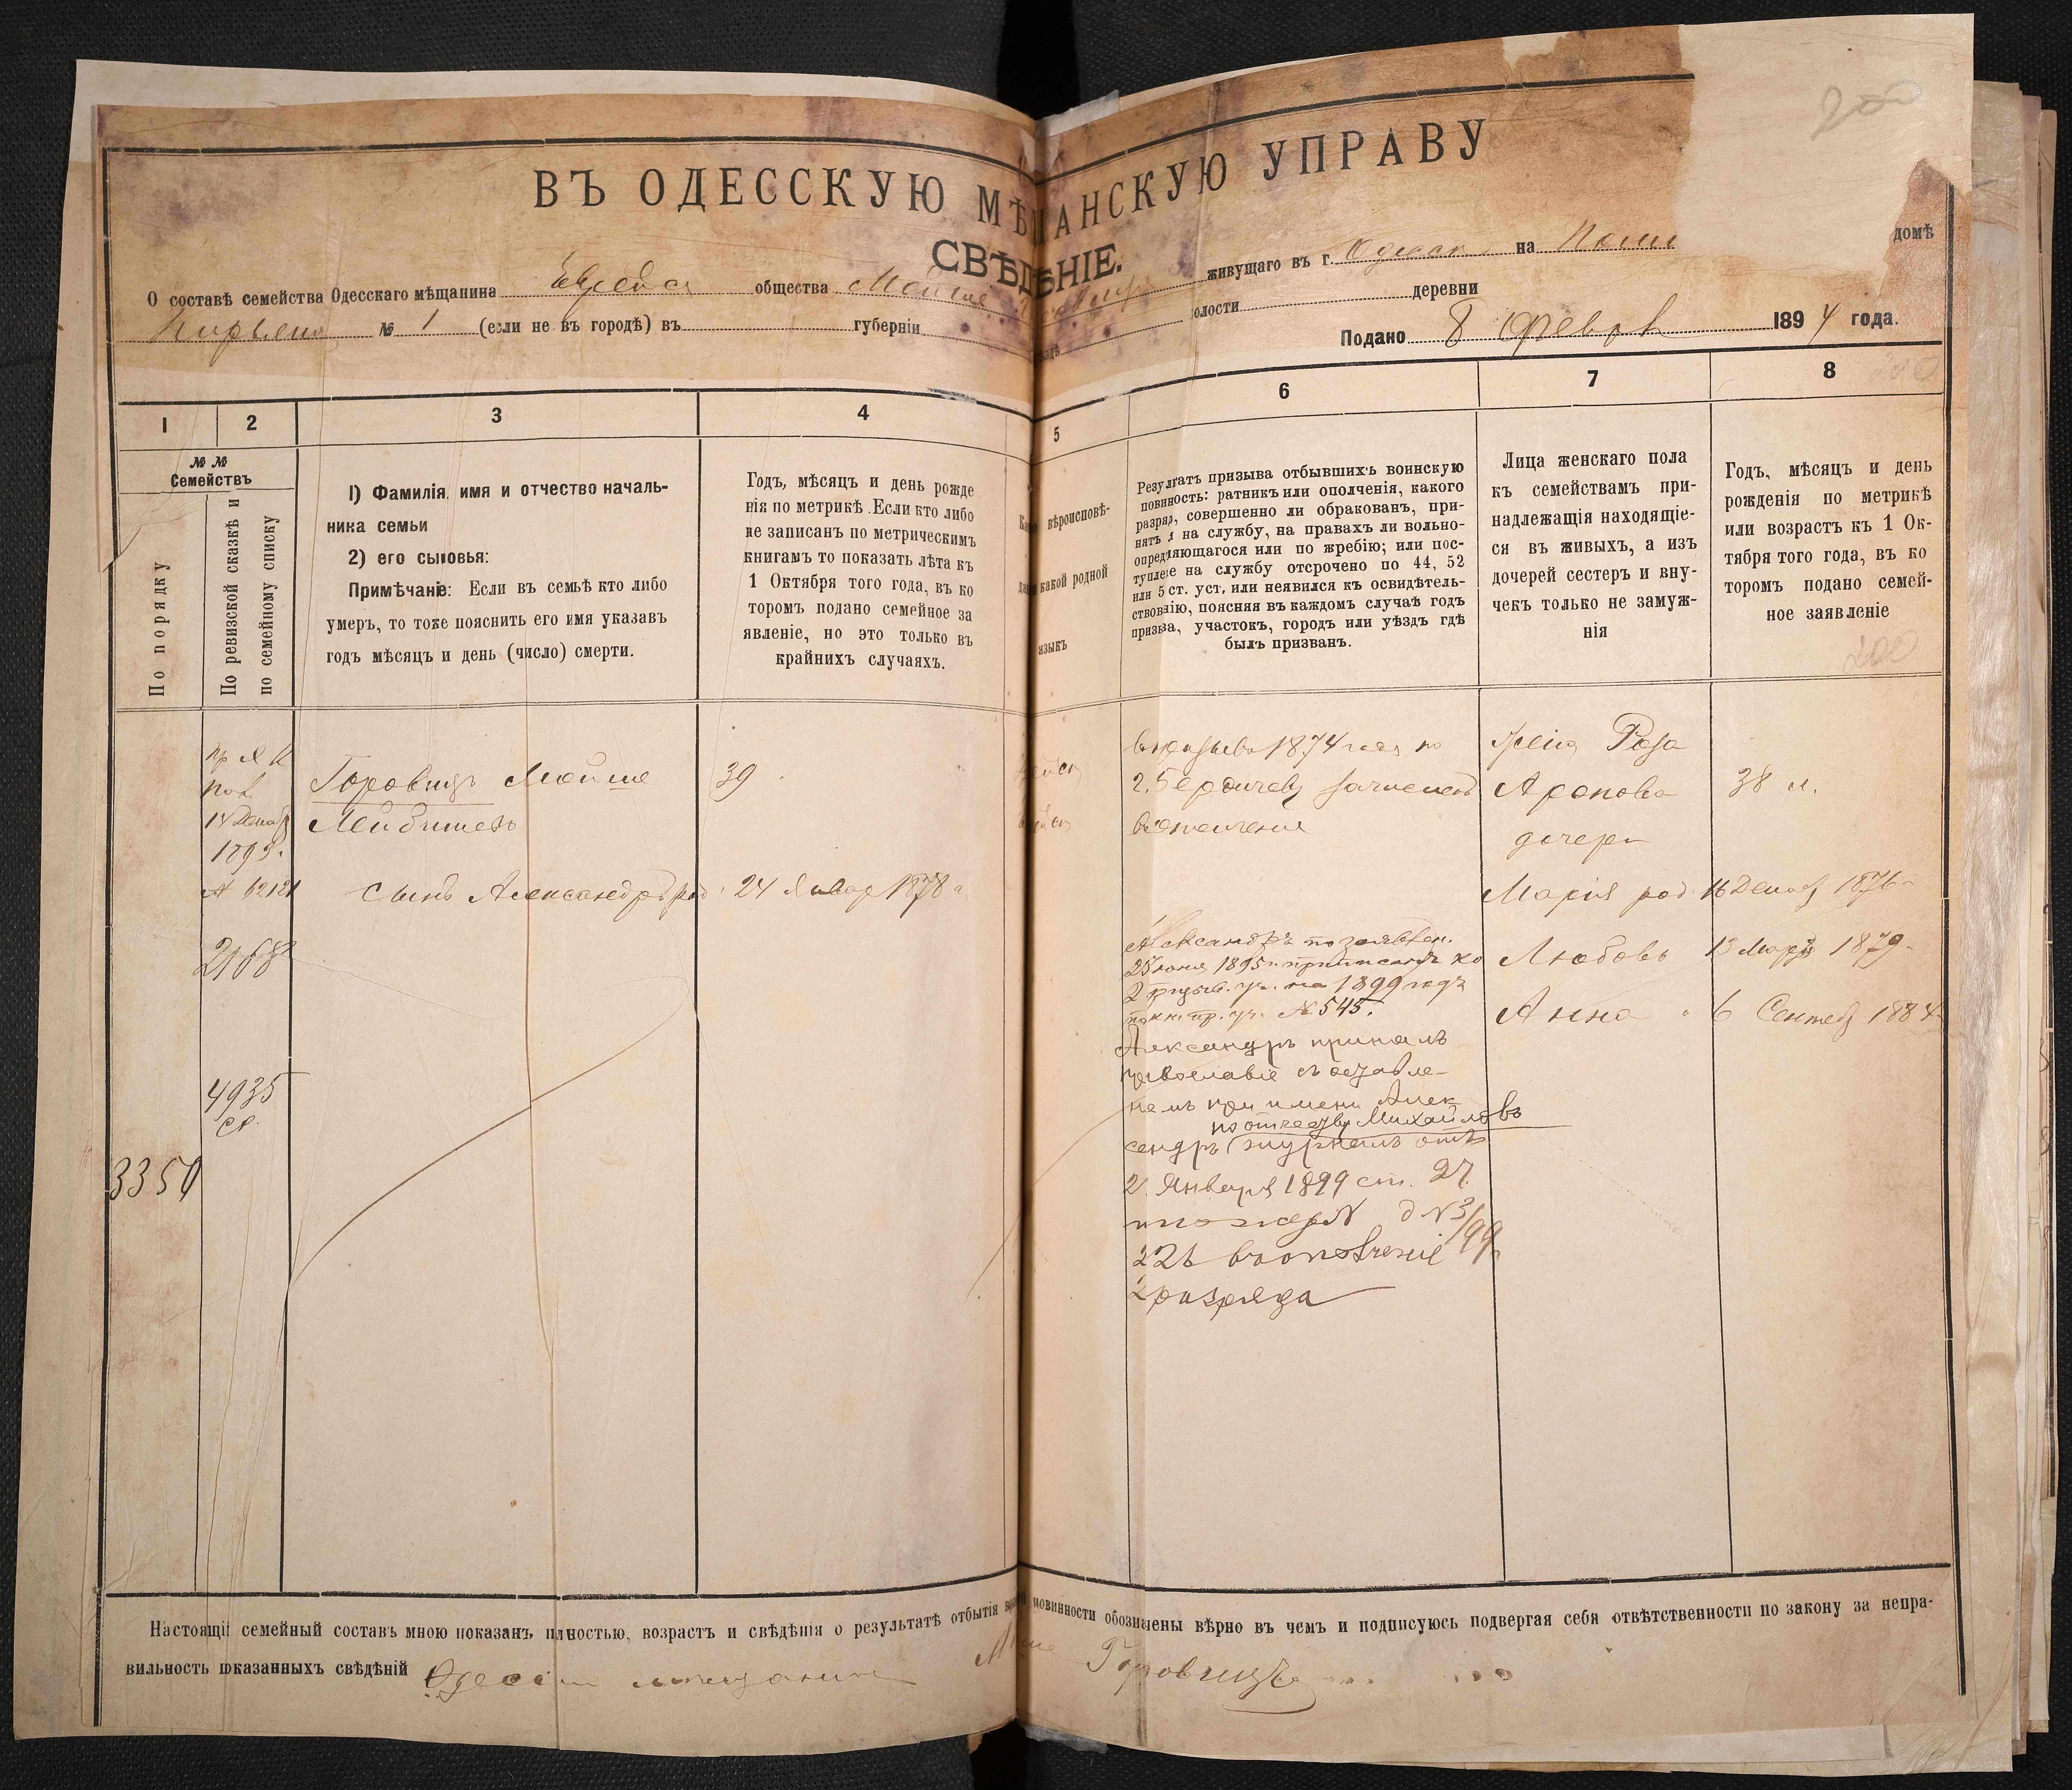 200
ВЪ ОДЕССКУЮ МѢЩАНСКУЮ УПРАВУ
СВѢДѢНІЕ.
О составѣ семейства Одесскаго мѣщанина общества Мойше живущаго въ г. на домѣ
№ 1 (если не въ городѣ) въ губерніи олости деревни
Подано 8 Феврал 1894 года.
1 2 3 4 5 6 7 8
№ № Семействъ
По порядку
По ревизской сказкѣ и
по семейному списку
1) Фамилія, имя и отчество началь-
ника семьи
2) его сыновья:
Примѣчаніе: Если въ семьѣ кто либо
умеръ, то тоже пояснить его имя указавъ
годъ мѣсяцъ и день (число) смерти.
Годъ, мѣсяцъ и день рожде
нія по метрикѣ. Если кто либо
не записанъ по метрическимъ
книгамъ то показать лѣта къ
1 Октября того года, въ ко
торомъ подано семейное за
явленіе, но это только въ
крайнихъ случаяхъ.
вѣроисповѣ-
какой родной
языкъ
Результатъ призыва отбывшихъ воинскую
повинность: ратникъ или ополченія, какого
разряд, совершенно ли обракованъ, при-
нятъ на службу, на правахъ ли вольно-
опредѣляющагося или по жребію; или пос-
тупленіе на службу отсрочено по 44, 52
или 5 ст. уст. или неявился къ освидѣтель-
ствованію, поясняя въ каждомъ случаѣ годъ
призыва, участокъ, городъ или уѣздъ гдѣ
былъ призванъ.
Лица женскаго пола
къ семействамъ при-
надлежащія находящіе-
ся въ живыхъ, а изъ
дочерей сестеръ и вну-
чекъ только не замуж-
нія
Годъ, мѣсяцъ и день
рожденія по метрикѣ
или возрастъ къ 1 Ок-
тября того года, въ ко
торомъ подано семей-
ное заявленіе
200
14 Декаб
1893.
Горовицъ Мойше 39
Лейбишевъ
1874 года по
г. Бердичеву зачисленъ
въ ополченіе
Роза
Аронова 38 л.
дочери
сынъ Александръ род. 24 Январ 1878 г
Марія род. 16 Декаб 1876
Любовь 13 Марта 1879
Анна 6 Сентяб 1884
2168
4935
3350
Александръ по заявлен.
1895 г. приписанъ ко
2 призыв. уч. на 1899 годъ
пр. уч. № 545.
Александръ принялъ
православіе съ оставле-
ніемъ при имени Алек
по отчеству Михайловъ
сандръ журналъ отъ
2 Января 1899 ст. 27.
д № 3/99
въ ополченіе
2 разряда
Настоящій семейный составъ мною показанъ полностью, возрастъ и свѣдѣнія о результатѣ отбытія воинской повинности обозначены вѣрно въ чемъ и подписуюсь подвергая себя отвѣтственности по закону за непра-
вильность показанныхъ свѣдѣній мещанин Горовицъ